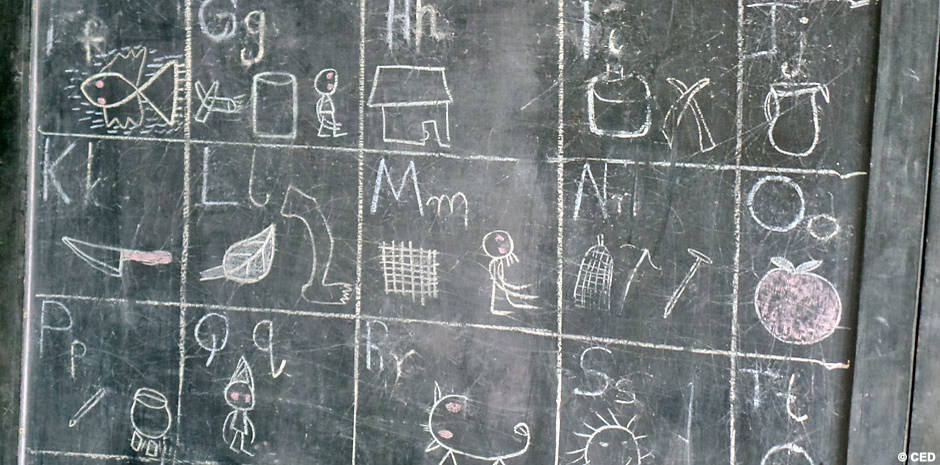 F f
G g
H h
I i
J j
K k
L l
M m
N n
O o
P p
Q q
R r
S s
T t
© CED